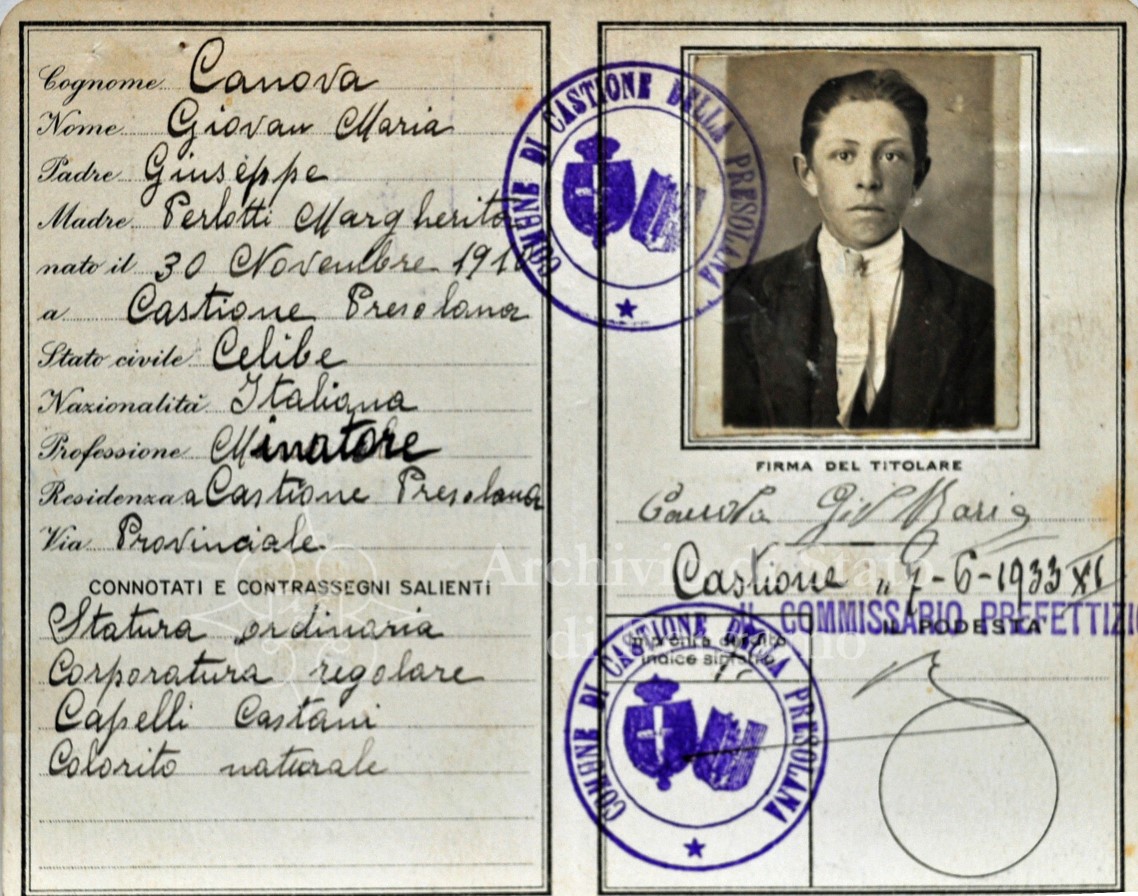 Cognome Canova
Nome Giovan Maria
Padre Giuseppe
Madre Perlotti Margherita
nato il 30 Novembre 191
a Castione Presolana
Stato civile Celibe
Nazionalità Italiana
Professione Minatore
Residenza a Castione Presolana
Via Provinciale
CONNOTATI E CONTRASSEGNI SALIENTI
Statura ordinaria
Corporatura regolare
Capelli Castani
Colorito naturale
COMUNE DI CASTIONE DELLA PRESOLANA
FIRMA DEL TITOLARE
Canova Maria
Castione 7-6-1933 XI
IL COMMISSARIO PREFETTIZIO
IL PODESTÀ
Impronta del dito
indice sinistro
COMUNE DI CASTIONE DELLA PRESOLANA
Archivio di Stato